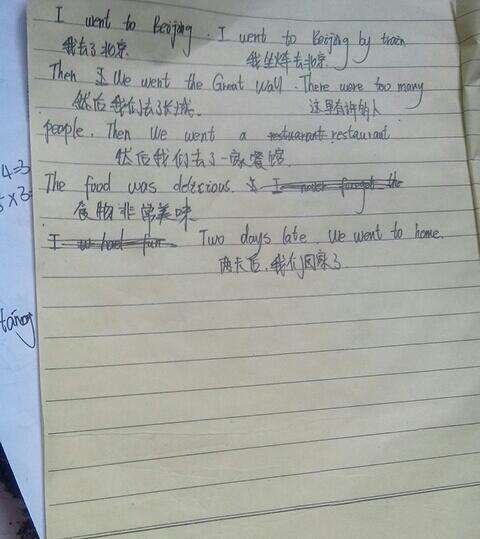 I went to Beijing. I went to Beijing by train
我去了北京 我坐火车去北京
Then I We went the Great Wall. There were too many
然后我们去了长城. 这里有许多人
people. Then We went a restuarant restaurant
然后我们去了一家餐馆
The food was delecious. I I never forget the
食物非常美味
I had fun Two days late. We went to home.
两天后,我们回家了
4=3
×3
tang